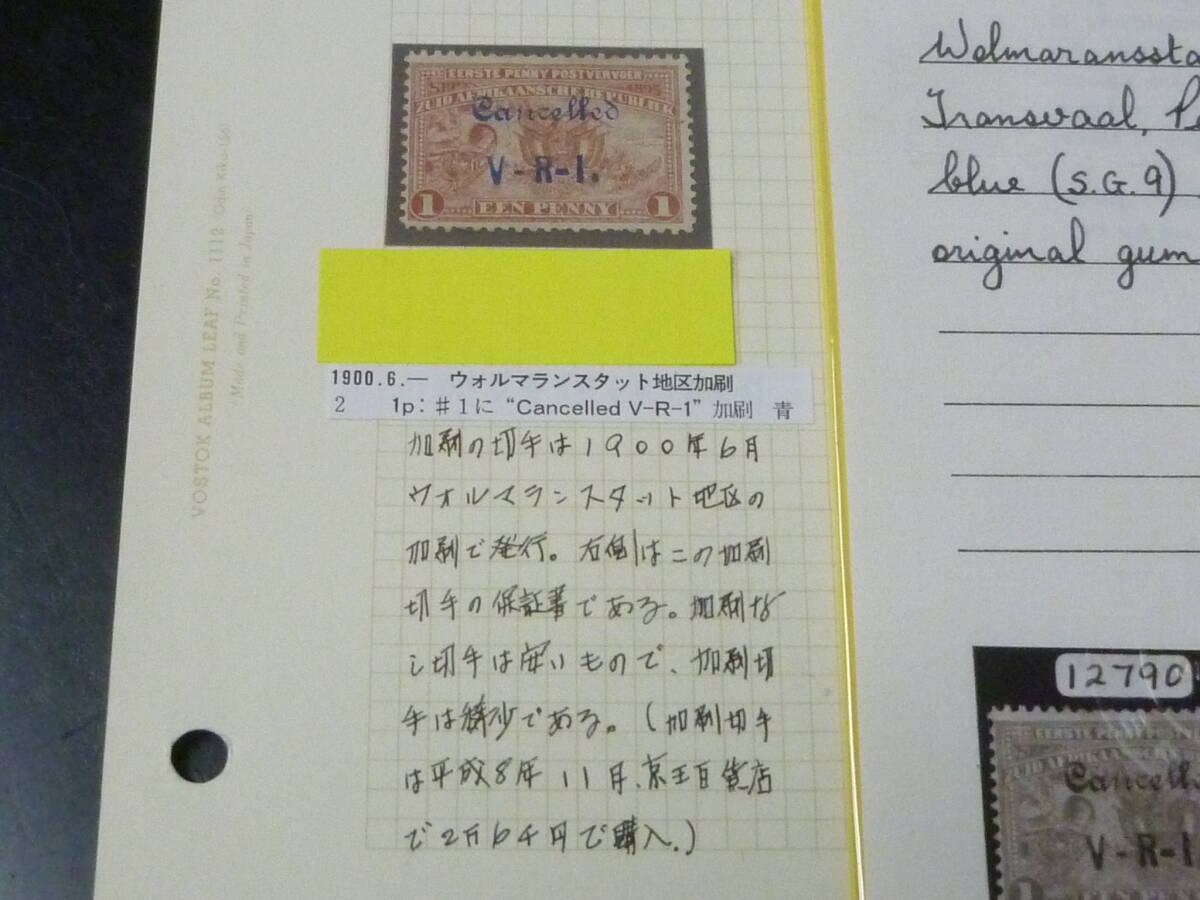 EERSTE PENNY POSTVERVOER
1895
ZUID AFRIKAANSCHE REPUBLIEK
Cancelled
V-R-I.
1 EEN PENNY 1
VOSTOK ALBUM LEAF No. 1112
Made and Printed in Japan
1900.6.— ウォルマランスタット地区加刷
2 1p: #1に“Cancelled V-R-1”加刷 青
加刷の切手は1900年6月
ウォルマランスタット地区の
加刷で発行。右側はこの加刷
切手の保証書である。加刷な
し切手は安いもので、加刷切
手は稀少である。(加刷切手
は平成8年11月、京王百貨店
で2万6千円で購入.)
Wolmaranssta
Transvaal, Pe
blue (S.G.9)
original gum
12790
EERSTE PENNY
ZUID AFRIKAANSCHE
Cancelle
V-R-I
1